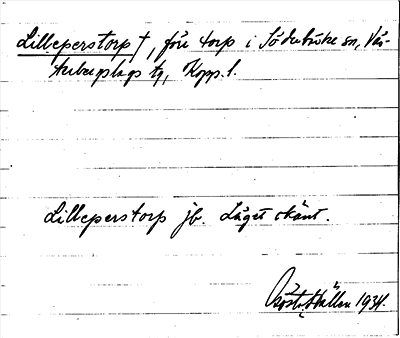 Lilleperstorp †, förr torp i Söderbärke sn, Väs-
terbergslags tg, Kopp. l.
Lilleperstorp jb. Läget okänt.
Gösta Hallén 1934.